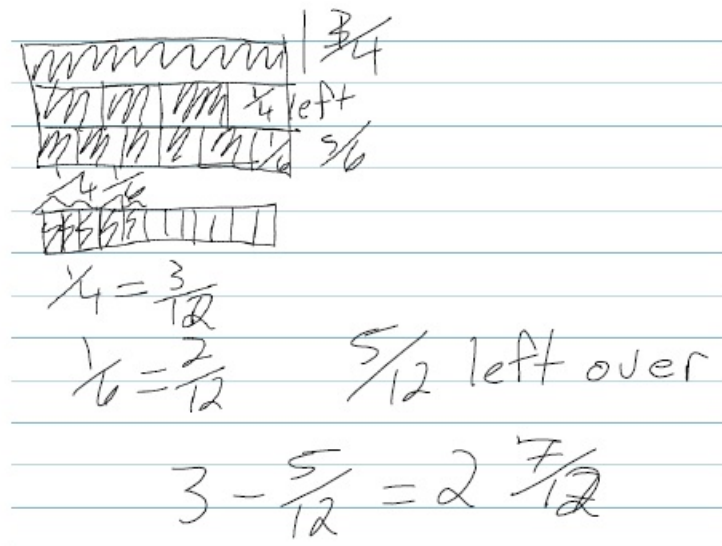 1 3/4
1/4 left
1/6 5/6
1/4 1/6
1/4 = 3/12
1/6 = 2/12 5/12 left over
3 - 5/12 = 2 7/12